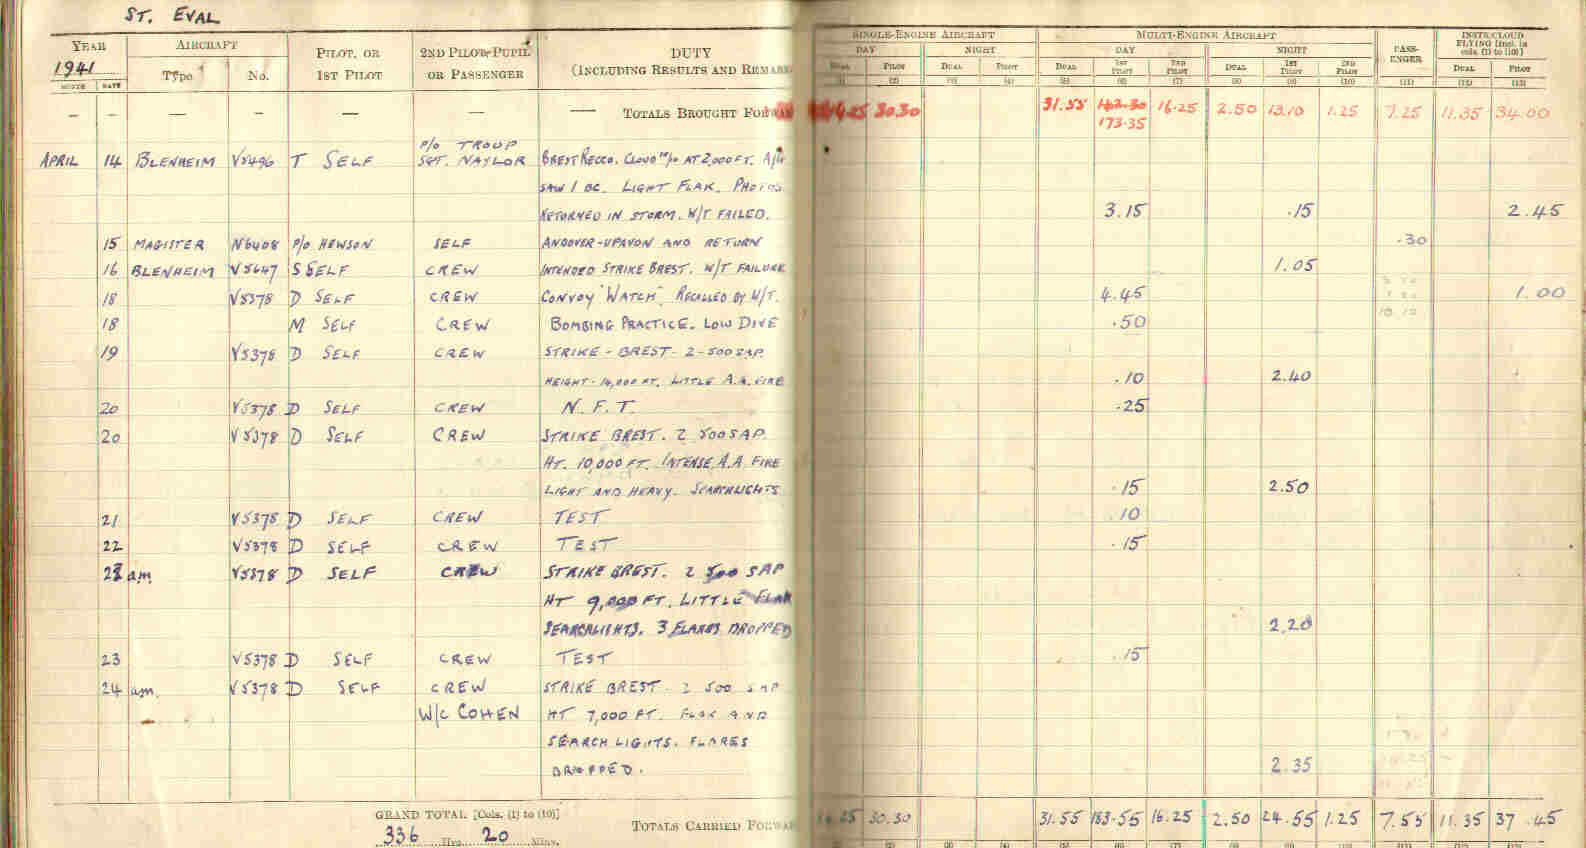 ST. EVAL
YEAR AIRCRAFT PILOT, OR 1ST PILOT 2ND PILOT, PUPIL OR PASSENGER DUTY (INCLUDING RESULTS AND REMARKS SINGLE-ENGINE AIRCRAFT MULTI-ENGINE AIRCRAFT PASS-ENGER INSTR/CLOUD FLYING [Incl. in cols. (1) to (10)]
1941 Type No. DAY NIGHT DAY NIGHT
MONTH DATE DUAL PILOT DUAL PILOT DUAL 1ST PILOT 2ND PILOT DUAL 1ST PILOT 2ND PILOT DUAL PILOT
(1) (2) (3) (4) (5) (6) (7) (8) (9) (10) (11) (12) (13)
— — — — — — — TOTALS BROUGHT FORWAR 30.30 31.55 16.25 2.50 13.10 1.25 7.25 11.35 34.00
173.35
P/O TROUP
APRIL 14 BLENHEIM V5496 T SELF SGT. NAYLOR BREST RECCO. CLOUD 10/10 AT 2,000 FT. A/C
SAW 1 BC. LIGHT FLAK. PHOTOS
RETURNED IN STORM. W/T FAILED. 3.15 .15 2.45
15 MAGISTER N6408 P/O HEWSON SELF ANDOVER-UPAVON AND RETURN .30
16 BLENHEIM V5647 S SELF CREW INTENDED STRIKE BREST. W/T FAILURE 1.05
18 V5378 D SELF CREW CONVOY "WATCH". RECALLED BY W/T. 4.45 1.00
18 M SELF CREW BOMBING PRACTICE. LOW DIVE .50
19 V5378 D SELF CREW STRIKE - BREST - 2-500 SAP
HEIGHT - 14,000 FT. LITTLE A.A. FIRE .10 2.40
20 V5378 D SELF CREW N.F.T. .25
20 V5378 D SELF CREW STRIKE BREST. 2 500 SAP
HT. 10,000 FT. INTENSE A.A FIRE
LIGHT AND HEAVY. SEARCHLIGHTS .15 2.50
21 V5378 D SELF CREW TEST .10
22 V5378 D SELF CREW TEST .15
22 a.m. V5378 D SELF CREW STRIKE BREST. 2 500 SAP
HT 9,000 FT. LITTLE FLAK
SEARCHLIGHTS. 3 FLARES DROPPED 2.20
23 V5378 D SELF CREW TEST .15
24 a.m. V5378 D SELF CREW STRIKE BREST. 2 500 SAP
W/C COHEN HT 7,000 FT. FLAK AND
SEARCH LIGHTS. FLARES
DROPPED. 2.35
GRAND TOTAL [Cols. (1) to (10)] TOTALS CARRIED FORWAR 30.30 31.55 183.55 16.25 2.50 24.55 1.25 7.55 11.35 37.45
336 Hrs. 20 Mins.